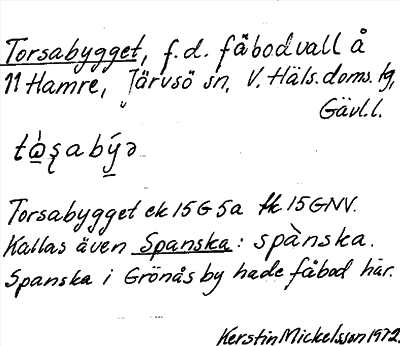 Torsabygget, f.d. fäbodvall å
11 Hamre, Järvsö sn, V. Häls. doms. tg,
Gävl. l.
tò̱ʂabý̱ə
Torsabygget ek 15G 5a fk 15GNV.
Kallas även Spanska: spànska.
Spanska i Grönås by hade fäbod här.
Kerstin Mickelsson 1972.